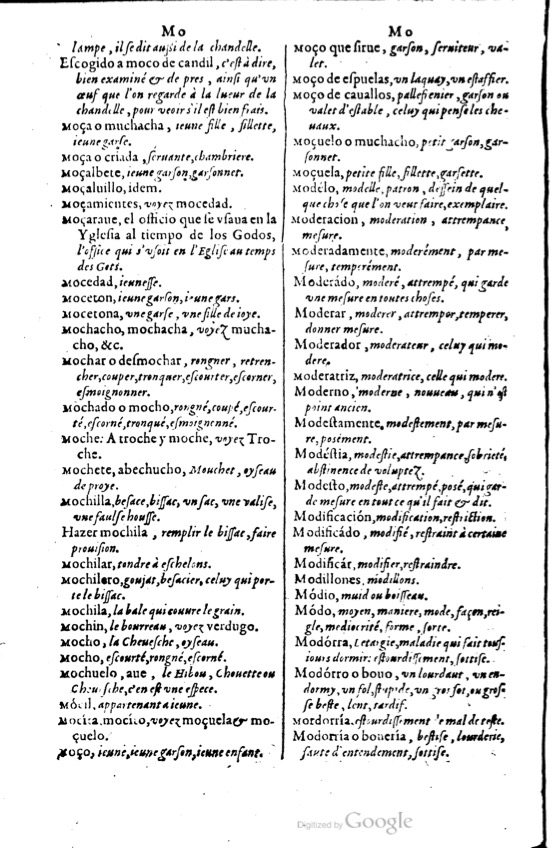 Mo
lampe, il se dit aussi de la chandelle.
Escogido a moco de candil, c'est à dire,
bien examiné & de pres, ainsi qu'vn
œuf que l'on regarde à la lueur de la
chandelle, pour veoir s'il est bien frais.
Moça o muchacha, ieune fille, fillette,
ieune garse.
Moça o criada, seruante, chambriere.
Moçalbete, ieune garson, garsonnet.
Moçaluillo, idem.
Moçamientes, voyez mocedad.
Moçaraue, el officio que se vsaua en la
Yglesia al tiempo de los Godos,
l'office qui s'vsoit en l'Eglise au temps
des Gots.
Mocedad, ieunesse.
Moceton, ieune garson, ieune gars.
Mocetona, vne garse, vne fille de ioye.
Mochacho, mochacha, voyez mucha-
cho, &c.
Mochar o desmochar, rongner, retren-
cher, couper, tronquer, escourter, escorner,
esmoignonner.
Mochado o mocho, rongné, coupé, escour-
té, escorné, tronqué, esmoignonné.
Moche: A troche y moche, voyez Tro-
che.
Mochete, abechucho, Mouchet, oyseau
de proye.
Mochilla, besace, bissac, vn sac, vne valise,
vne faulse housse.
Hazer mochila, remplir le bissac, faire
prouision.
Mochilar, tondre à eschelons.
Mochilero, goujat, besacier, celuy qui por-
te le bissac.
Mochila, la bale qui couure le grain.
Mochin, le bourreau, voyez verdugo.
Mocho, la Cheuesche, oyseau.
Mocho, escourté, rongné, escorné.
Mochuelo, aue, le Hibou, Chouette ou
Cheuesche, c'en est vne espece.
Mócil, appartenant a ieune.
Mocita, mocito, voyez moçuela & mo-
çuelo.
Moço, ieune, ieune garson, ieune enfant.
Mo
Moço que sirue, garson, seruiteur, va-
let.
Moço de espuelas, vn laquay, vn estaffier.
Moço de cauallos, pallefrenier, garson ou
valet d'estable, celuy qui pense les che-
uaux.
Moçuelo o muchacho, petit garson, gar-
sonnet.
Moçuela, petite fille, fillette, garsette.
Modélo, modelle, patron, dessein de quel-
que chose que l'on veut faire, exemplaire.
Moderacion, moderation, attrempance,
mesure.
Moderadamente, moderément, par me-
sure, temperément.
Moderádo, moderé, attrempé, qui garde
vne mesure en toutes choses.
Moderar, moderer, attremper, temperer,
donner mesure.
Moderador, moderateur, celuy qui mo-
dere.
Moderatriz, moderatrice, celle qui modere.
Moderno, moderne, nouueau, qui n'est
point ancien.
Modestamente, modestement, par mesu-
re, posément.
Modéstia, modestie, attrempance, sobrieté,
abstinence de voluptez.
Modesto, modeste, attrempé, posé, qui gar-
de mesure en tout ce qu'il fait & dit.
Modificación, modification, restriction.
Modificádo, modifié, restraint à certaine
mesure.
Modificár, modifier, restraindre.
Modillones, modillons.
Módio, muid ou boisseau.
Módo, moyen, maniere, mode, façon, rei-
gle, mediocrité, forme, sorte.
Modórra, Letargie, maladie qui fait tous-
iours dormir: estourdissement, sottise.
Modórro o bouo, vn lourdaut, vn en-
dormy, vn fol, stupide, vn gros sot, ou gros-
se beste, lent, tardif.
Mordorría, estourdissement le mal de teste.
Modorría o bouería, bestise, lourderie,
faute d'entendement, sottise.
Digitized by Google